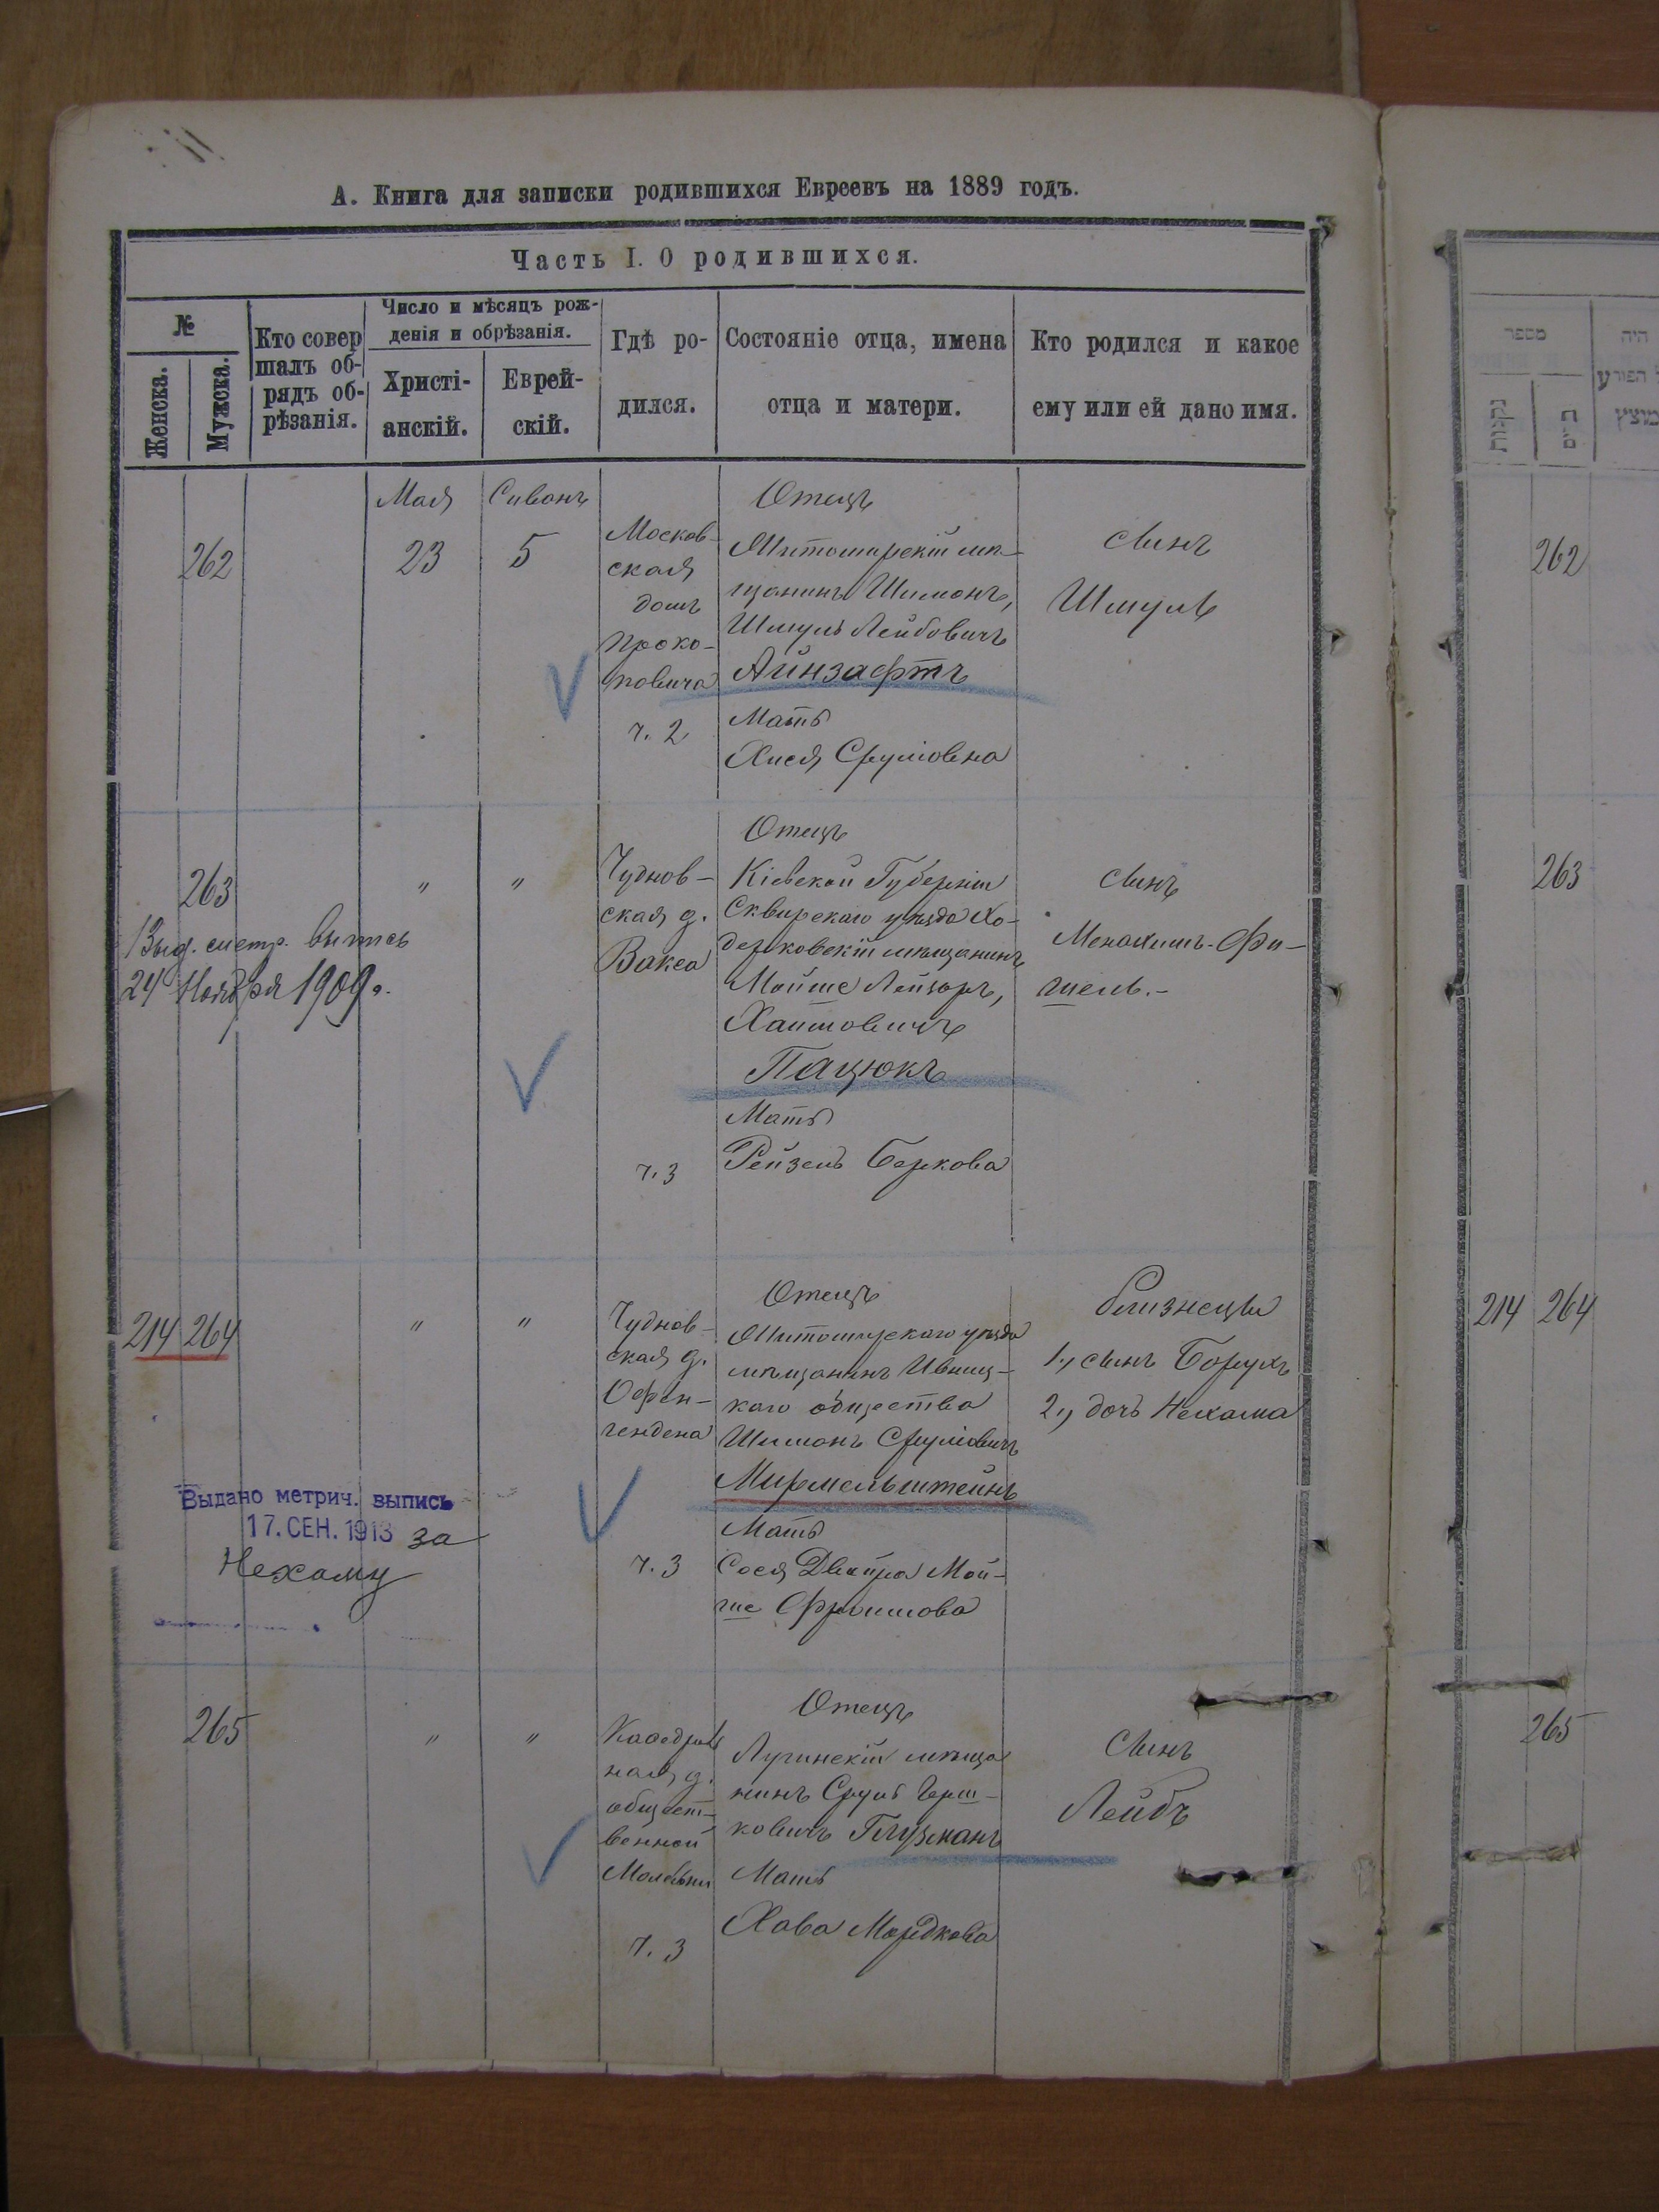 А. Книга для записки родившихся Евреевъ на 1889 годъ.
Часть I. О родившихся.
№
Женска.
Мужска.
Кто совер
шалъ об-
рядъ об-
рѣзанія.
Число и мѣсяцъ рож-
денія и обрѣзанія.
Христі-
анскій.
Еврей-
скій.
Гдѣ ро-
дился.
Состояніе отца, имена
отца и матери.
Кто родился и какое
ему или ей дано имя.
262
Мая
23
Сивонъ
5
Москов-
ская
домъ
Проко-
повича
ч. 2
Отецъ
Житомирскій мѣ-
щанинъ Шимонъ,
Шмуль Лейбовичъ
Айнзафтъ
Мать
Хися Сруліовна
сынъ
Шмуль
263
Выд. метр. выпись
24 Ноября 1909 г.
"
"
Чуднов-
ская д.
Вакса
ч. 3
Отецъ
Кіевской Губерніи
Сквирскаго уѣзда Хо-
дорковскій мѣщанинъ
Мойше Лейзоръ,
Хаимовичъ
Пацюкъ
Мать
Рейзель Беркова
сынъ
Менахимъ-Фи-
шель.-
214 264
"
"
Чуднов-
ская д.
Офен-
гендена
ч. 3
Отецъ
Житомирскаго уѣзда
мѣщанинъ Ивниц-
каго общества
Шимонъ Сруліовичъ
Мирмельштейнъ
Мать
Сося Двойра Мой-
ше Фроимова
близнецы
1., сынъ Борухъ
2., дочь Нехама
Выдано метрич. выпись
17. СЕН. 1913 за
Нехаму
265
"
"
Каѳедраль
ная д.
общест-
венной
Молельни
ч. 3
Отецъ
Лугинскій мѣща
нинъ Сруль Герш-
ковичъ Глузманъ
Мать
Хава Мордкова
сынъ
Лейбъ
מספר
נקבות
היה
262
263
214 264
265